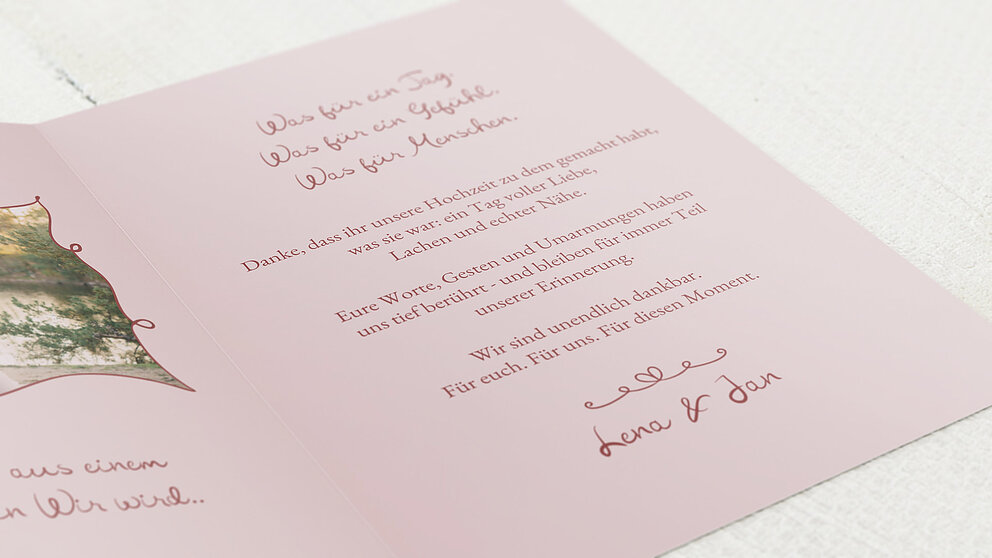 aus einem
Wir wird..
Was für ein Tag.
Was für ein Gefühl.
Was für Menschen.
Danke, dass ihr unsere Hochzeit zu dem gemacht habt,
was sie war: ein Tag voller Liebe,
Lachen und echter Nähe.
Eure Worte, Gesten und Umarmungen haben
uns tief berührt - und bleiben für immer Teil
unserer Erinnerung.
Wir sind unendlich dankbar.
Für euch. Für uns. Für diesen Moment.
Lena & Jan